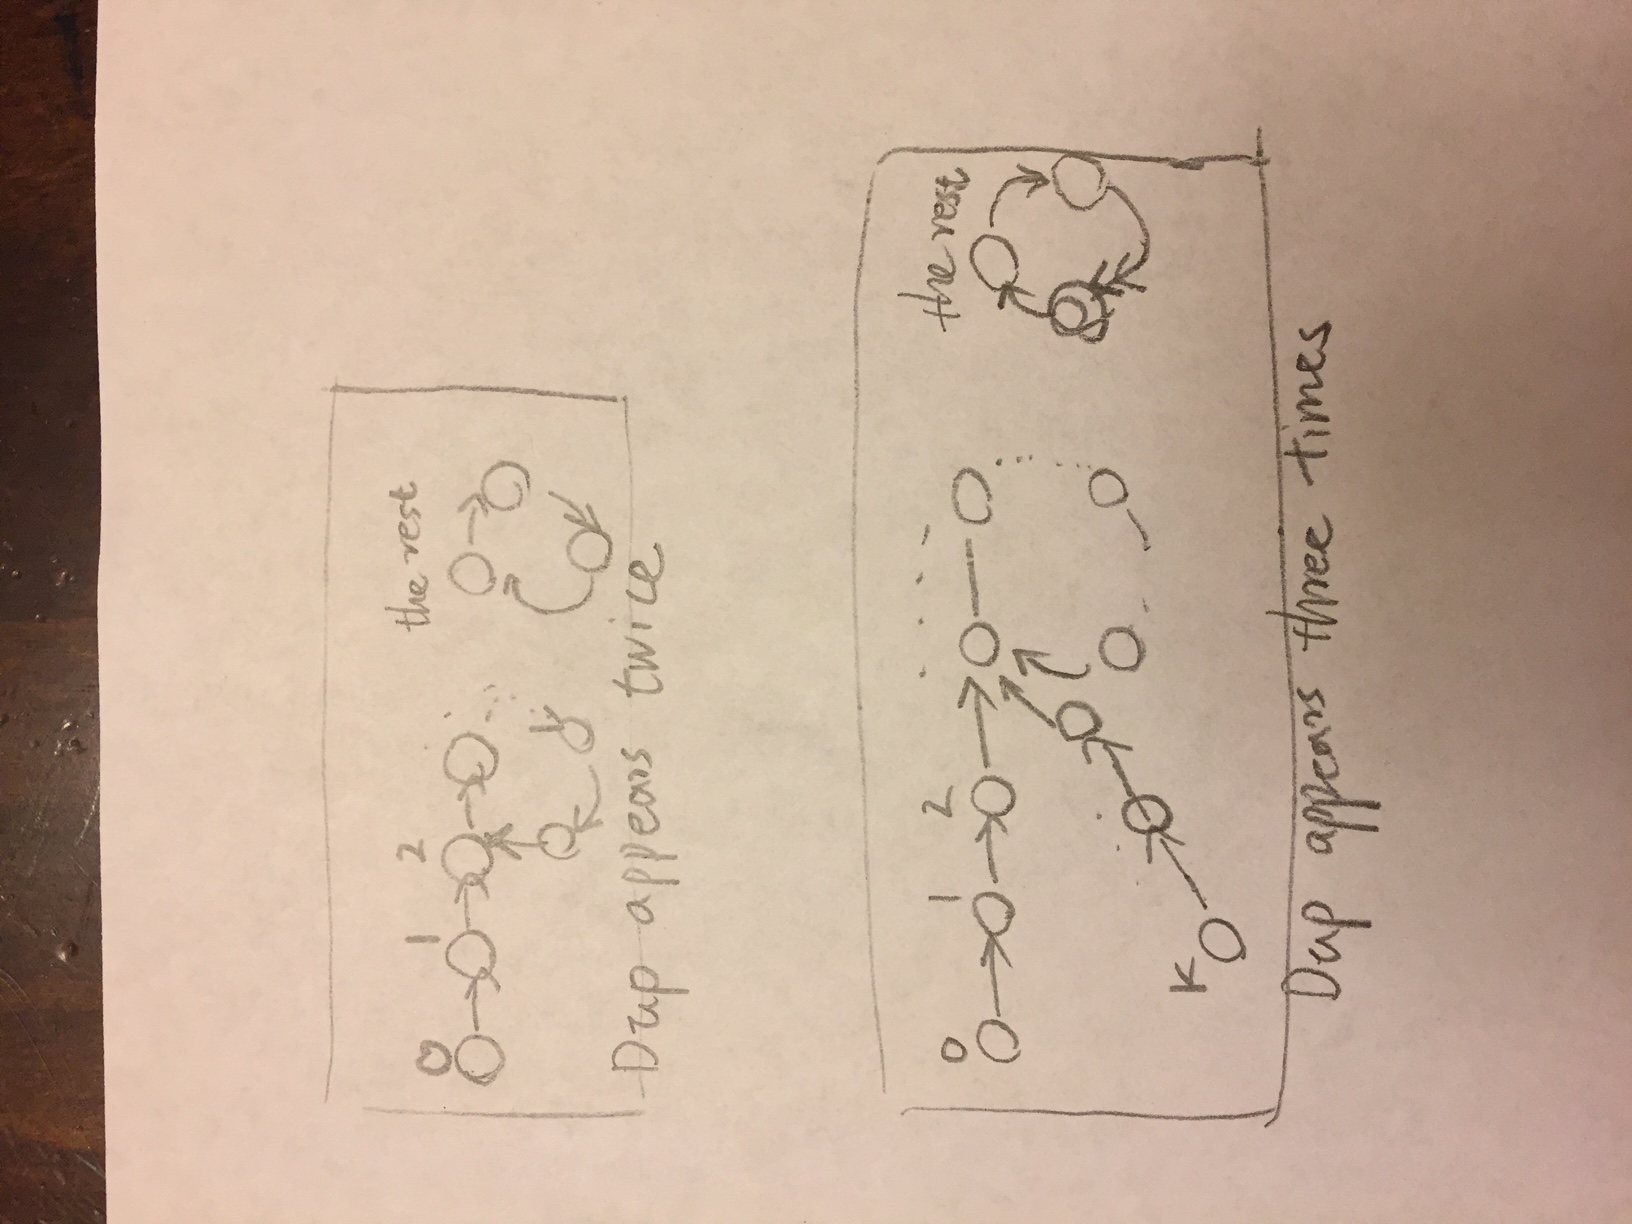 0 1 2 the rest
Dup appears twice
0 1 2 the rest
K
Dup appears three times